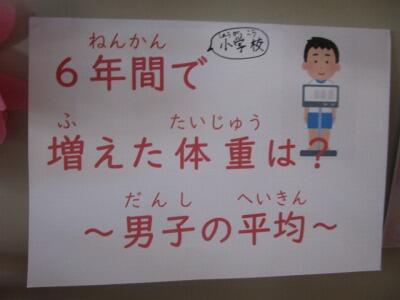 しょうがっこう
小学校
ねんかん
6年間で
ふ たいじゅう
増えた体重は?
だんし へいきん
～男子の平均～